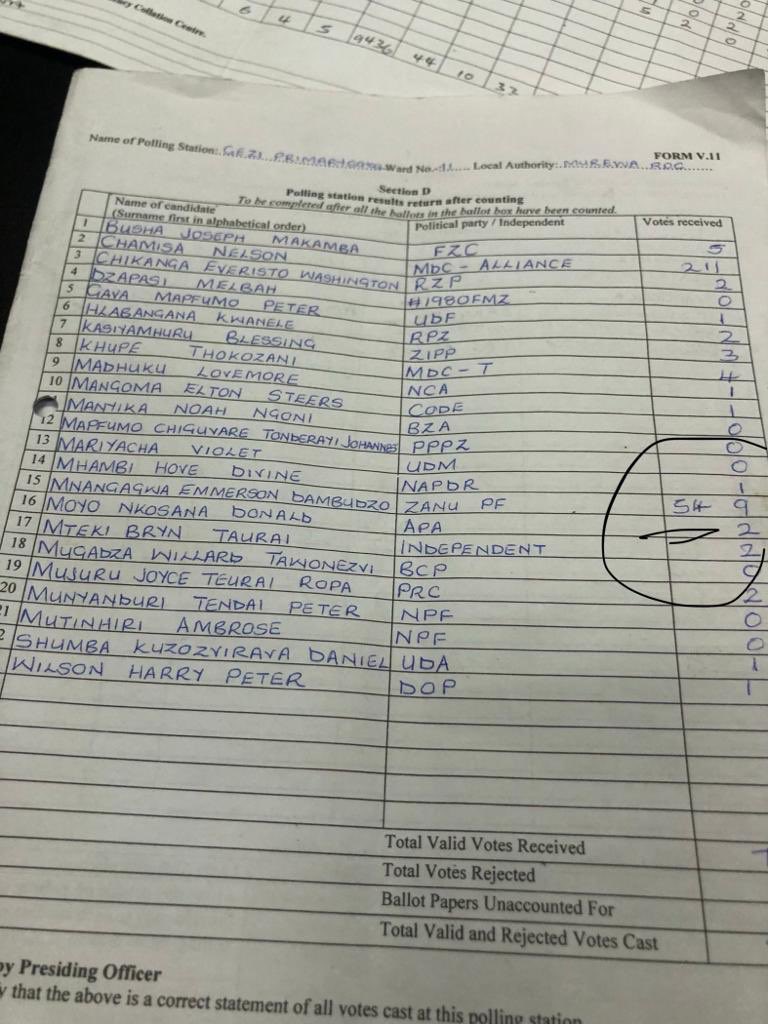 ry Collation Centre.
6 4 5 9436 44 10 33
5 0 2
2 2
0 0
Name of Polling Station: GEZI PRIMARY Ward No. 11 Local Authority: MUREWA RDC
FORM V.11
Section D
Polling station results return after counting
To be completed after all the ballots in the ballot box have been counted.
Name of candidate (Surname first in alphabetical order) Political party / Independent Votes received
1 BUSHA JOSEPH MAKAMBA FZC 5
2 CHAMISA NELSON MDC - ALLIANCE 211
3 CHIKANGA EVERISTO WASHINGTON RZP 2
4 DZAPASI MELBAH #1980FMZ 0
5 GAVA MAPFUMO PETER UDF 1
6 HLABANGANA KWANELE RPZ 2
7 KASIYAMHURU BLESSING ZIPP 3
8 KHUPE THOKOZANI MDC - T 4
9 MADHUKU LOVEMORE NCA 1
10 MANGOMA ELTON STEERS CODE 1
MANYIKA NOAH NGONI BZA 0
12 MAPFUMO CHIGUVARE TONDERAYI JOHANNES PPPZ 0
13 MARIYACHA VIOLET UDM 0
14 MHAMBI HOVE DIVINE NAPDR 1
15 MNANGAGWA EMMERSON DAMBUDZO ZANU PF 549
16 MOYO NKOSANA DONALD APA 2
17 MTEKI BRYN TAURAI INDEPENDENT 2
18 MUGADZA WILLARD TAWONEZVI BCP
19 MUJURU JOYCE TEURAI ROPA PRC 2
20 MUNYANDURI TENDAI PETER NPF 0
1 MUTINHIRI AMBROSE NPF 0
2 SHUMBA KUZOZVIRAVA DANIEL UDA 1
WILSON HARRY PETER DOP 1
Total Valid Votes Received
Total Votes Rejected
Ballot Papers Unaccounted For
Total Valid and Rejected Votes Cast
by Presiding Officer
y that the above is a correct statement of all votes cast at this polling station